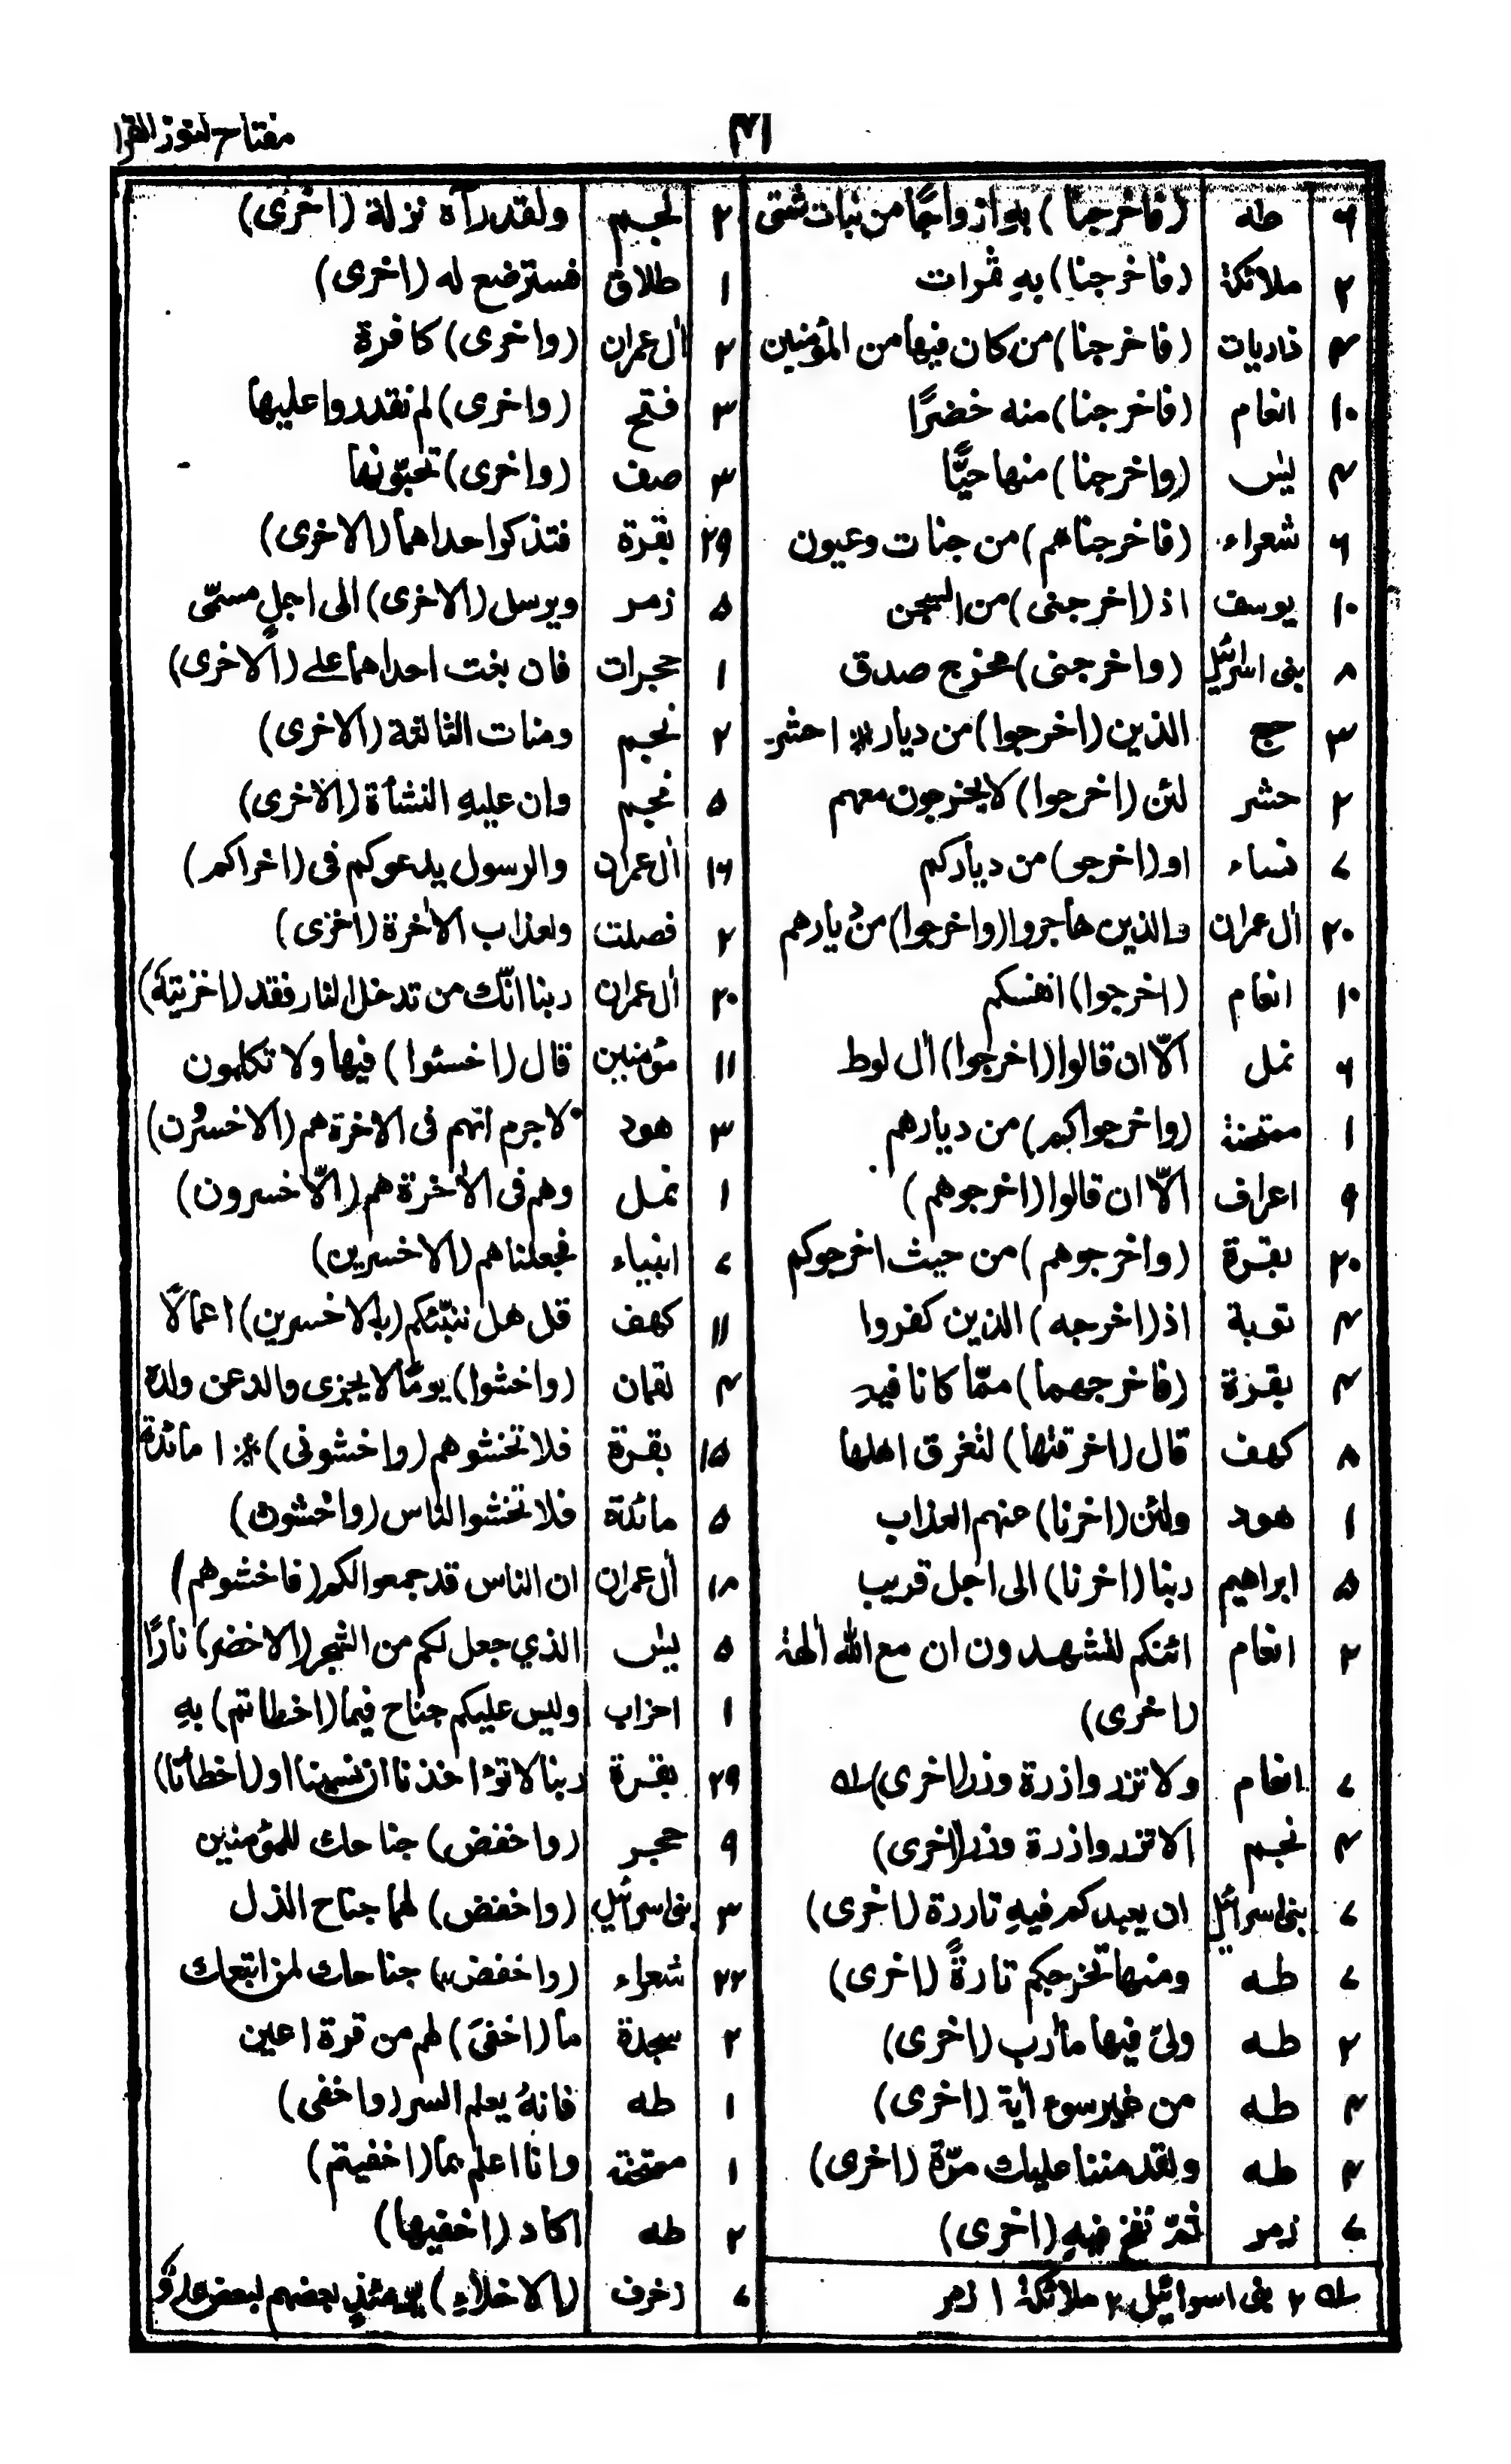 مفتاح كنوز القرا
۴۱
۶ طه (فاخرجنا) به ازواجًا من نبات شتى
۲ ملائكة (فاخرجنا) به ثمرات
۲ ذاريات (فاخرجنا) من كان فيها من المؤمنين
۱۰ انعام (فاخرجنا) منه خضرًا
۳ يٰس (واخرجنا) منها حبًّا
۶ شعراء (فاخرجناهم) من جنات وعيون
۱۰ يوسف اذ (اخرجنى) من السجن
۸ بنى اسرائيل (واخرجنى) مخرج صدق
۳ حج الذين (اخرجوا) من ديار ۱ حشر
۲ حشر لئن (اخرجوا) لا يخرجون معهم
۷ نساء او (اخرجو) من دياركم
۲۰ اٰل عمران والذين هاجروا (واخرجوا) من ديارهم
۱۰ انعام (اخرجوا) انفسكم
۶ نمل الّا ان قالوا (اخرجوا) اٰل لوط
۱ ممتحنة (واخرجواكم) من ديارهم
۹ اعراف الّا ان قالوا (اخرجوهم)
۲۰ بقرة (واخرجوهم) من حيث اخرجوكم
۴ توبة اذ (اخرجه) الذين كفروا
۴ بقرة (فاخرجهما) ممّا كانا فيه
۸ كهف قال (اخرقتها) لتغرق اهلها
۱ هود ولئن (اخرنا) عنهم العذاب
۵ ابراهيم ربنا (اخرنا) الى اجل قريب
۲ انعام ائنكم لتشهدون ان مع الله اٰلهة
(اخرى)
۷ انعام ولا تزر وازرة وزر (اخرى) له
۴ نجم الا تزر وازرة وزر (اخرى)
۷ بنى اسرائيل ان يعيدكم فيه تارة (اخرى)
۷ طه ومنها تخرجكم تارةً (اخرى)
۲ طه ولى فيها مأرب (اخرى)
۲ طه من غير سوء اٰية (اخرى)
۲ طه ولقد مننا عليك مرّة (اخرى)
۷ زمر ثمّ نفخ فيه (اخرى)
له ۲ بنى اسرائيل ۲ ملائكة ۱ زمر
۲ نجم ولقد رآه نزلة (اخرى)
۱ طلاق فسترضع له (اخرى)
۲ اٰل عمران (واخرى) كافرة
۳ فتح (واخرى) لم تقدروا عليها
۳ صف (واخرى) تحبّونها
۲۹ بقرة فتذكر احداهما (الاخرى)
۵ زمر ويرسل (الاخرى) الى اجل مسمّى
۱ حجرات فان بغت احداهما على (الاخرى)
۲ نجم ومنات الثالثة (الاخرى)
۵ نجم وان عليه النشأة (الاخرى)
۱۶ اٰل عمران والرسول يدعوكم فى (اخراكم)
۲ فصلت ولعذاب الاٰخرة (اخزى)
۲۰ اٰل عمران ربنا انّك من تدخل النار فقد (اخزيته)
۱۱ مؤمنين قال (اخسئوا) فيها ولا تكلمون
۳ هود لا جرم انهم فى الاخرة هم (الاخسرون)
۱ نمل وهم فى الاٰخرة هم (الاخسرون)
۷ انبياء فجعلناهم (الاخسرين)
۱۱ كهف قل هل ننبّئكم (بالاخسرين) اعمالًا
۴ لقمان (واخشوا) يومًا لا يجزى والد عن ولده
۱۵ بقرة فلا تخشوهم (واخشونى) ۱ مائدة
۵ مائدة فلا تخشوا الناس (واخشون)
۱۸ اٰل عمران ان الناس قد جمعوا لكم (فاخشوهم)
۵ يٰس الذي جعل لكم من الشجر (الاخضر) نارًا
۱ احزاب وليس عليكم جناح فيما (اخطاتم) به
۲۹ بقرة ربنا لا تؤاخذنا ان نسينا او (اخطأنا)
۹ حجر (واخفض) جناحك للمؤمنين
۳ بنى اسرائيل (واخفض) لهما جناح الذل
۲۲ شعراء (واخفض) جناحك لمن اتبعك
۲ سجدة ما (اخفى) لهم من قرة اعين
۱ طه فانهُ يعلم السر (واخفى)
۱ ممتحنة وانا اعلم بما (اخفيتم)
۲ طه اكاد (اخفيها)
۷ زخرف (الاخلاء) يومئذٍ بعضهم لبعض عدو